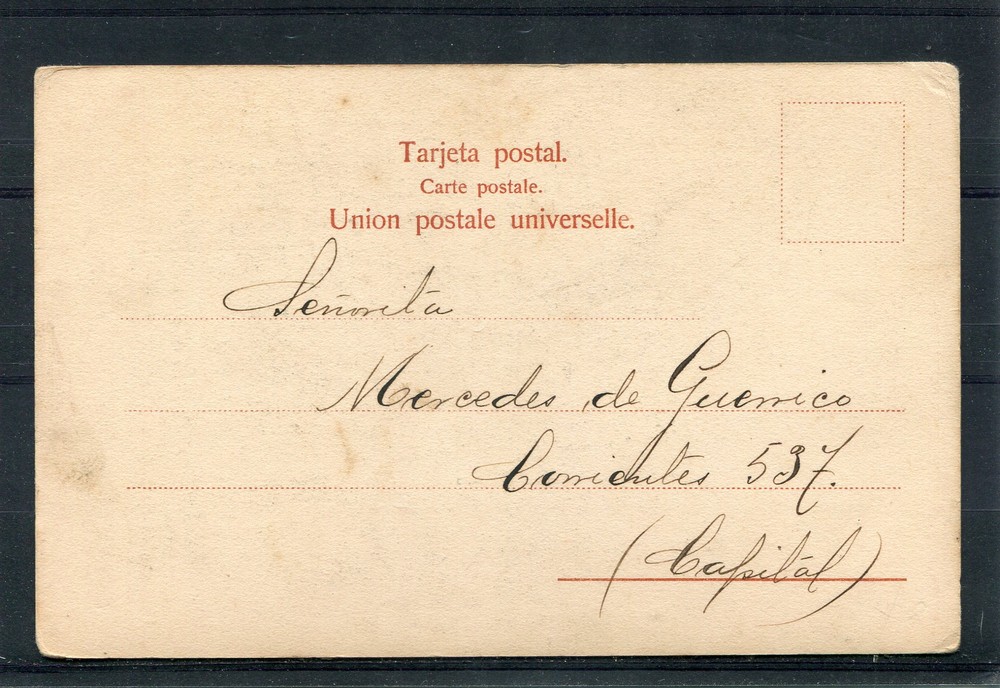 Tarjeta postal.
Carte postale.
Union postale universelle.
Señorita
Mercedes de Guerrico
Corrientes 537.
(Capital)